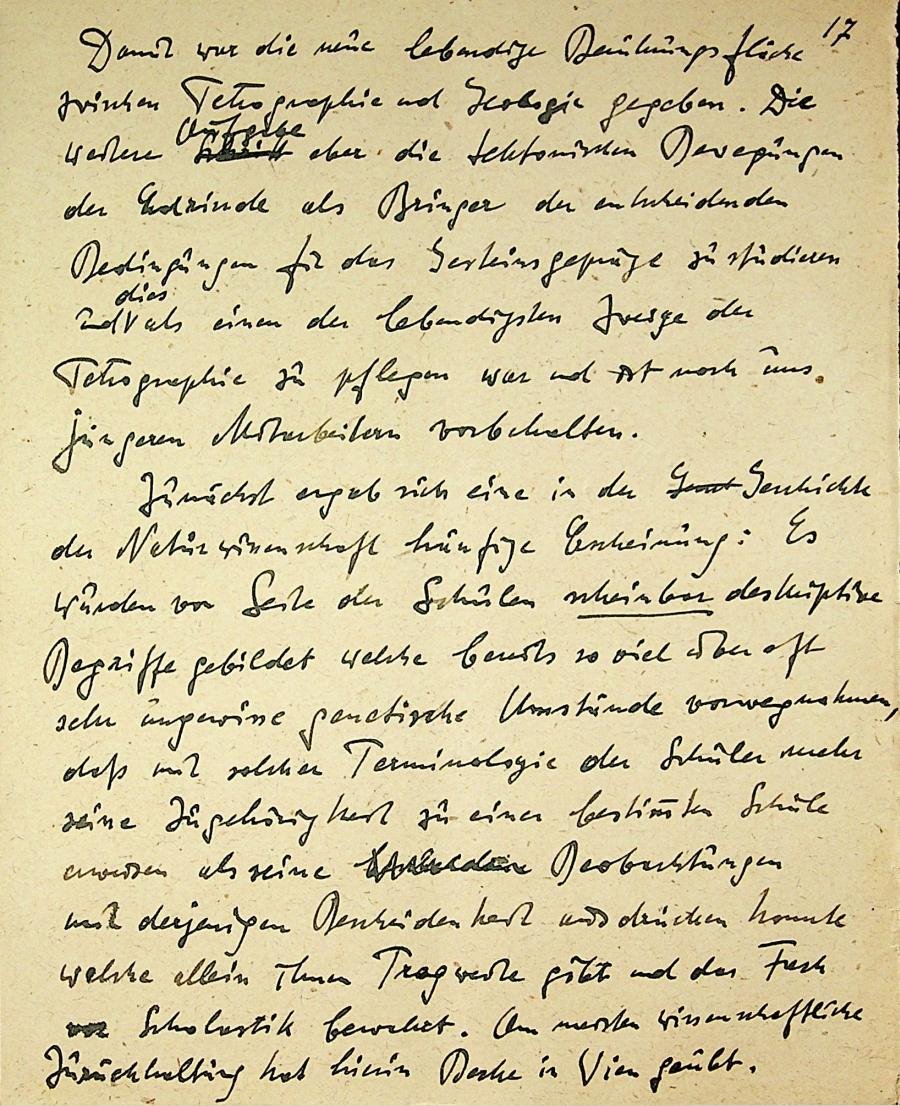 17
Damit war die neue lebendige Berührungsfläche
zwischen Petrographie und Geologie gegeben. Die
weitere Aufgabe aber die tektonischen Bewegungen
der Erdrinde als Bringer der entscheidenden
Bedingungen für das Gesteinsgepräge zu studieren
und dies als einen der lebendigsten Zweige der
Petrographie zu pflegen war und ist noch uns
jüngeren Mitarbeitern vorbehalten.
Zunächst ergab sich eine in der Geschichte
der Naturwissenschaft häufige Erscheinung: Es
wurden von Seite der Schulen scheinbar deskriptive
Begriffe gebildet welche bereits so viel über oft
sehr ungewisse genetische Umstände vorwegnahmen,
daß mit solcher Terminologie der Schüler mehr
seine Zugehörigkeit zu einer bestimmten Schule
erweisen als seine Beobachtungen
mit derjenigen Bescheidenheit ausdrücken konnte
welche allein Ihnen Tragweite gibt und das Fach
vor Scholastik bewahrt. Am meisten wissenschaftliche
Zurückhaltung hat hierin Becke in Wien geübt.